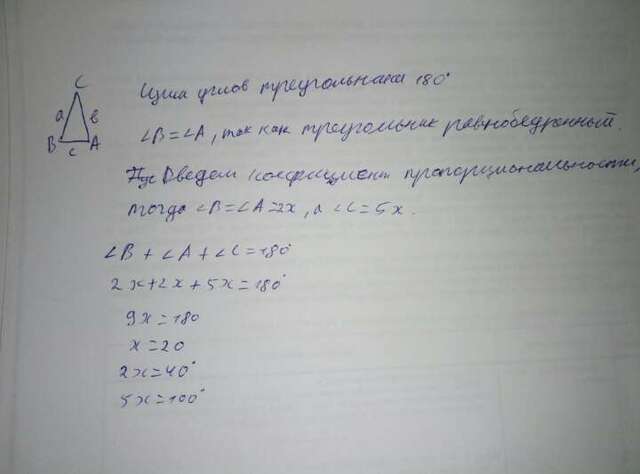 C
a в
B c A
Сумма углов треугольника 180°
∠B=∠A, так как треугольник равнобедренный.
Введем коэффициент пропорциональности,
тогда ∠B=∠A=2x, а ∠C=5x.
∠B+∠A+∠C=180°
2x+2x+5x=180°
9x=180
x=20
2x=40°
5x=100°